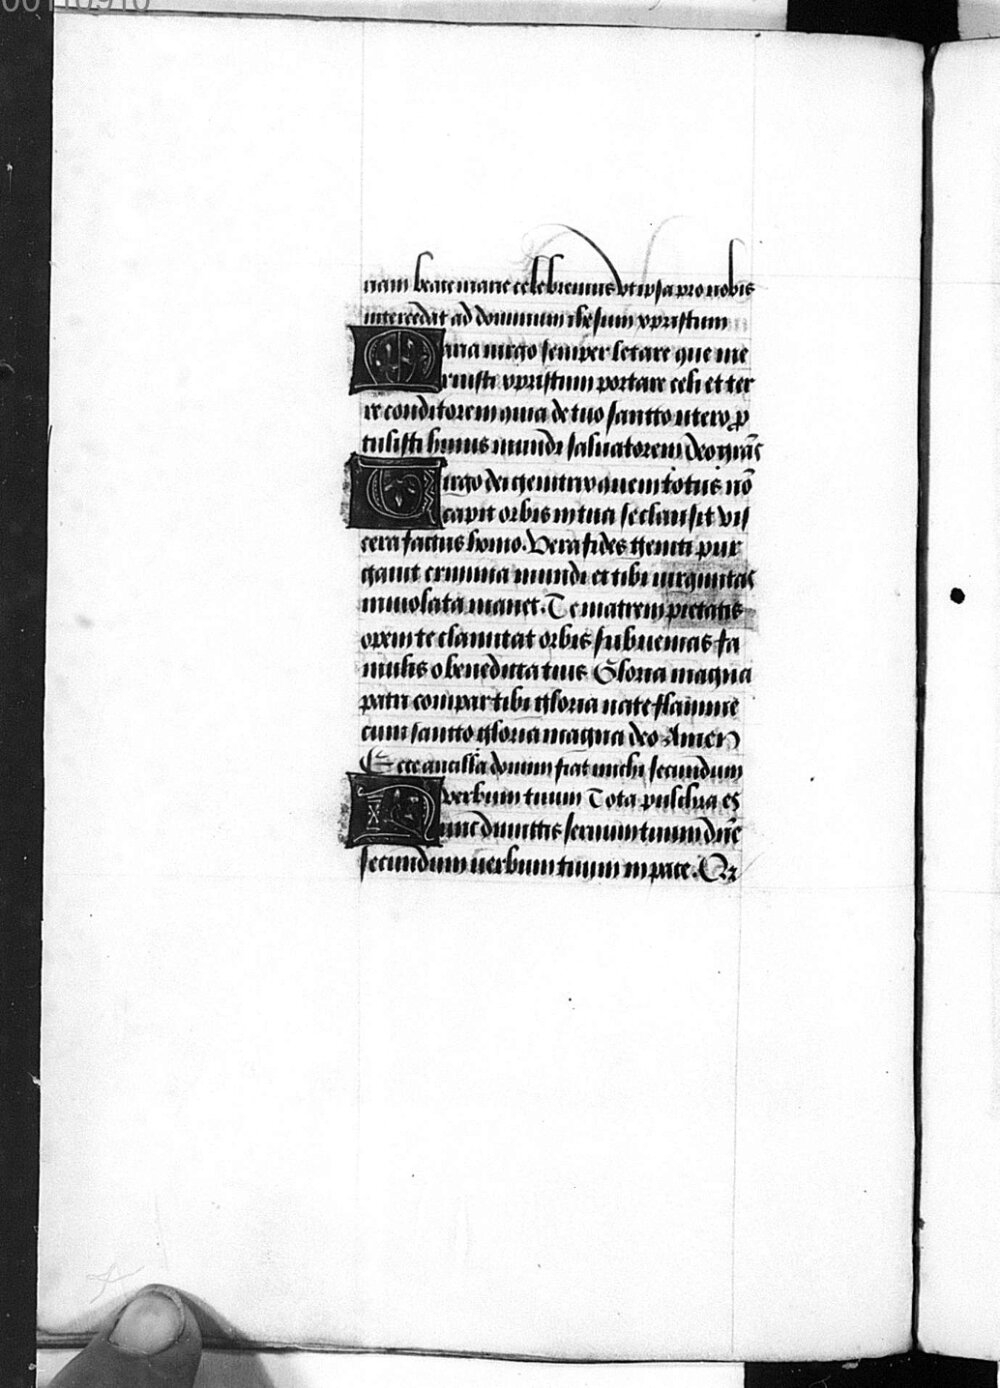 00110910
riam beate marie celebremus vt ipsa pro nobis
intercedat ad dominum ihesum xpristum
Maria uirgo semper letare que me
ruisti xpristum portare celi et ter
re conditorem quia de tuo santto utero p
tulisti huius mundi saluatorem deo grãs
Uirgo dei genitrix quem totus nõ
capit orbis in tua se clausit vis
cera factus homo. Vera fides geniti pur
gauit crimina mundi et tibi uirginitas
inuiolata manet. Te matrem pietatis
opem te clamitat orbis subuenias fa
mulis o benedicta tuis Gloria magna
patri compar tibi gloria nate flamine
cum santto gloria magna deo Amen
Ecce ancilla domini fiat michi secundum
verbum tuum Tota pulchra es
Nunc dimittis seruum tuum dñe
secundum uerbum tuum in pace. Or